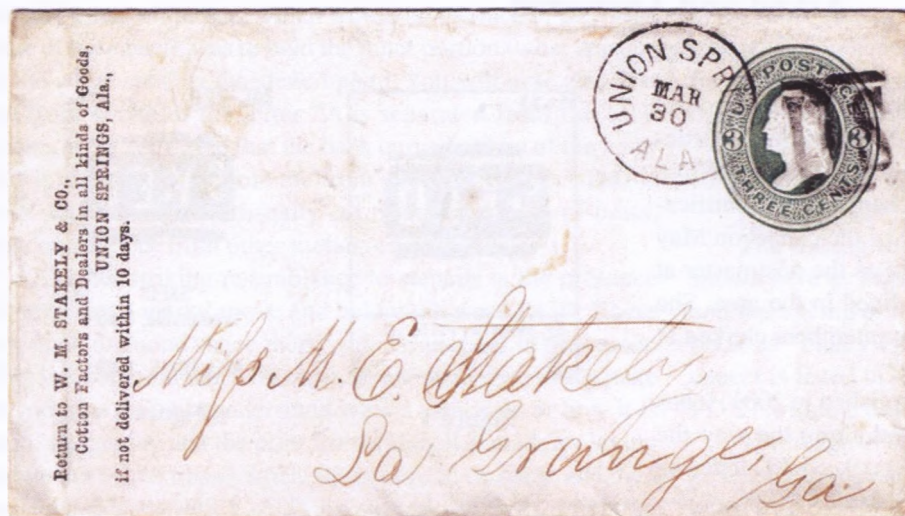 Return to W. M. STAKELY & CO.,
Cotton Factors and Dealers in all kinds of Goods,
UNION SPRINGS, Ala.,
if not delivered within 10 days.
UNION SPR
MAR
30
ALA
U.S. POSTAGE
3 3
THREE CENTS
Miss M. E. Stakely
La Grange,
Ga.